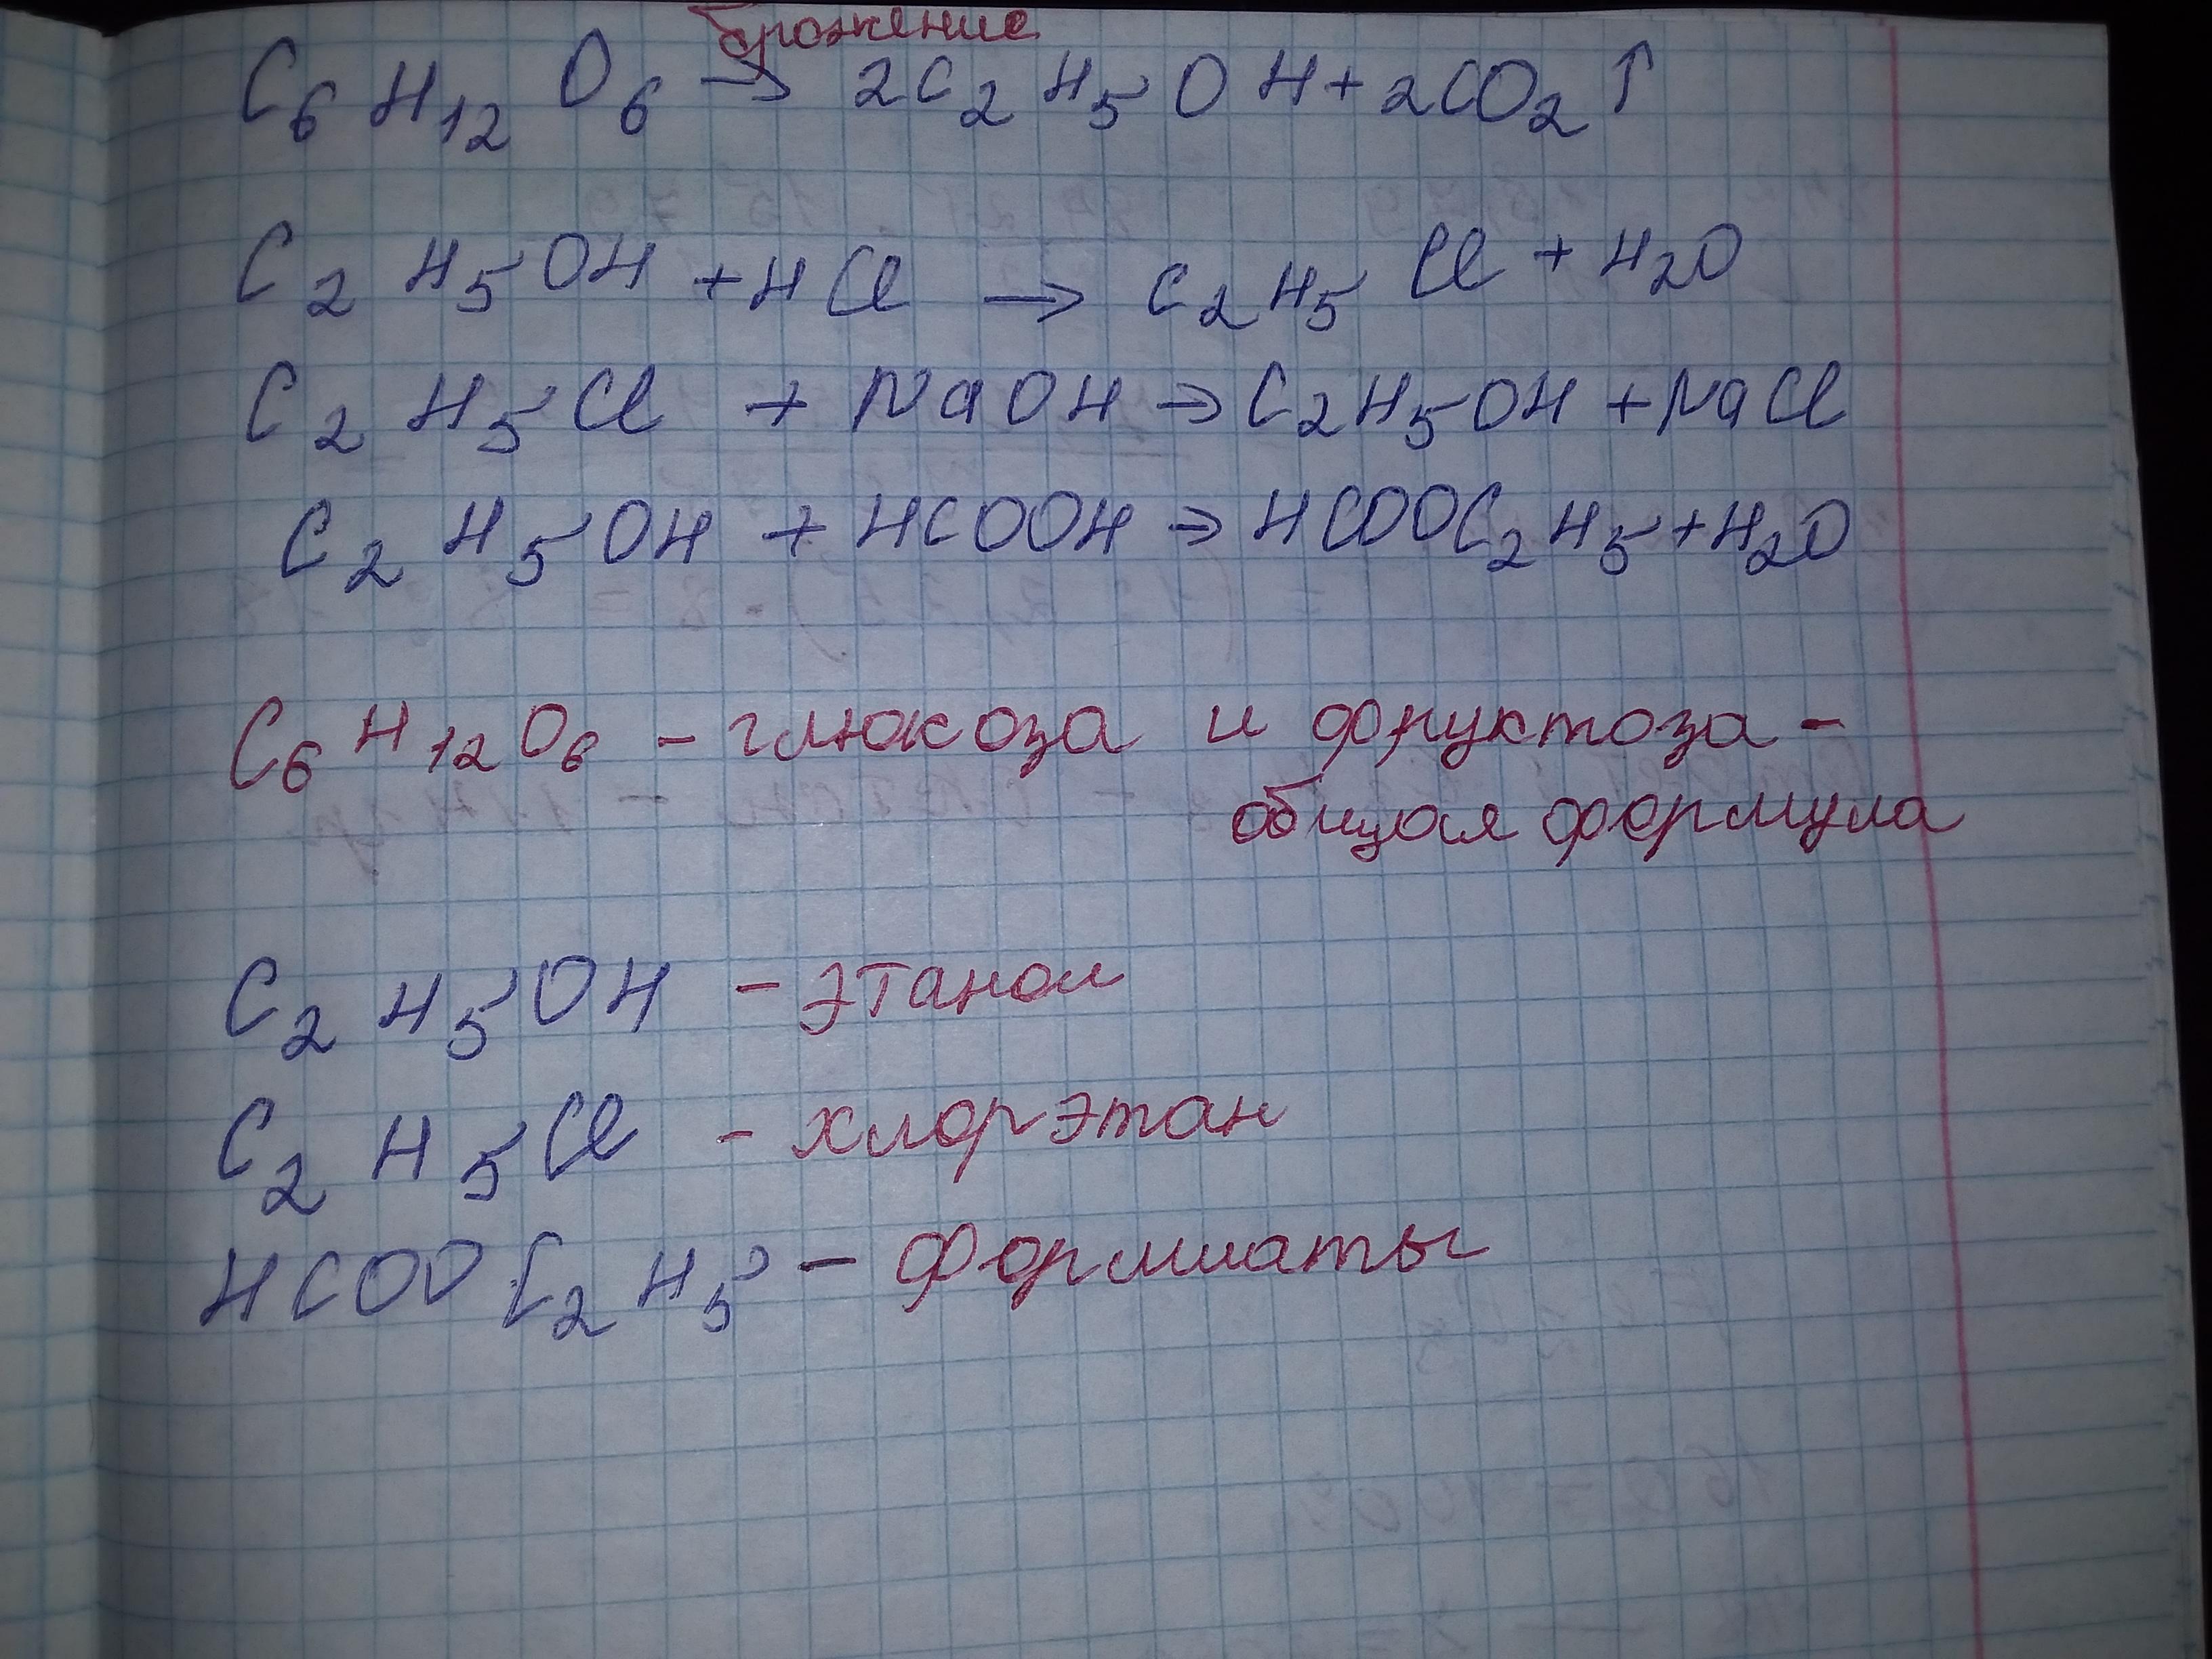 брожение
C₆H₁₂O₆ → 2C₂H₅OH + 2CO₂↑
C₂H₅OH + HCl → C₂H₅Cl + H₂O
C₂H₅Cl + NaOH → C₂H₅OH + NaCl
C₂H₅OH + HCOOH → HCOOC₂H₅ + H₂O
C₆H₁₂O₆ – глюкоза и фруктоза –
общая формула
C₂H₅OH – этанол
C₂H₅Cl – хлорэтан
HCOOC₂H₅ – Формиаты